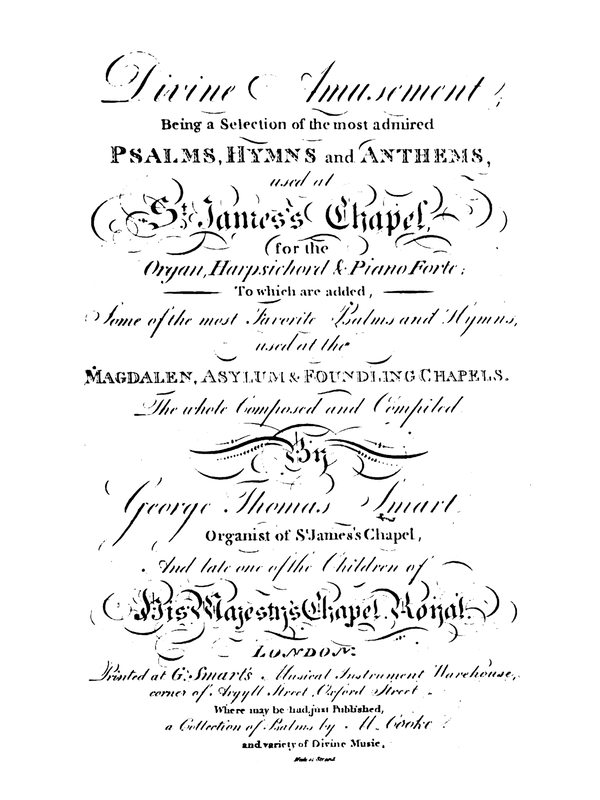 Divine Amusement;
Being a Selection of the most admired
PSALMS, HYMNS and ANTHEMS,
used at
St. James's Chapel,
for the
Organ, Harpsichord & Piano Forte;
To which are added,
Some of the most Favorite Psalms and Hymns,
used at the
MAGDALEN, ASYLUM & FOUNDLING CHAPELS.
The whole Composed and Compiled
By
George Thomas Smart
Organist of St. James's Chapel,
And late one of the Children of
His Majesty's Chapel Royal.
LONDON:
Printed at G. Smart's Musical Instrument Warehouse,
corner of Argyll Street, Oxford Street
Where may be had, just Published,
a Collection of Psalms by M. Cooke
and variety of Divine Music.
Strand